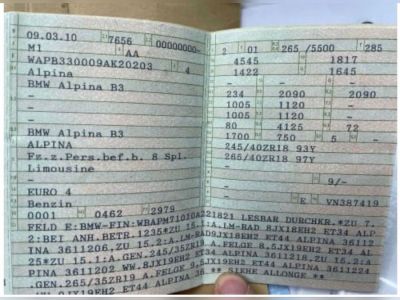 09.03.10 7656 00000000-
M1 AA
WAPB330009AK20203 4
Alpina
BMW Alpina B3
-
-
BMW Alpina B3
ALPINA
Fz.z.Pers.bef.b. 8 Spl.
Limousine
-
EURO 4
Benzin
0001 0462 2979
2 01 265 /5500 285
4545 1817
1422 1645
- - -
234 2090 2090
1005 1120 -
1005 1120 -
80 4125 72
1700 750 5 -
245/40ZR18 93Y
265/40ZR18 97Y
-
- 9/-
-
- E VN387419
FELD E:BMW-FIN:WBAPM71010A221821 LESBAR DURCHKR.*ZU 7.
2:BEI ANH.BETR.1235*ZU 15.1:A.LM-RAD 8JX18EH2 ET34 ALP
INA 3611206,ZU 15.2:A.LM-RAD9JX18EH2 ET44 ALPINA 36112
25*ZU 15.1:A.GEN.245/35ZR19 A.FELGE 8.5JX19EH2 ET34 AL
PINA 3611202 WW.8JX19EH2 ET34 ALPINA 3611218,ZU 15.2:A
.GEN.265/35ZR19 A.FELGE 9.5JX19EH2 ET44 ALPINA 3611224
WW.9JX19EH2 ET44 ALPINA 36 ** SIEHE ALLONGE **